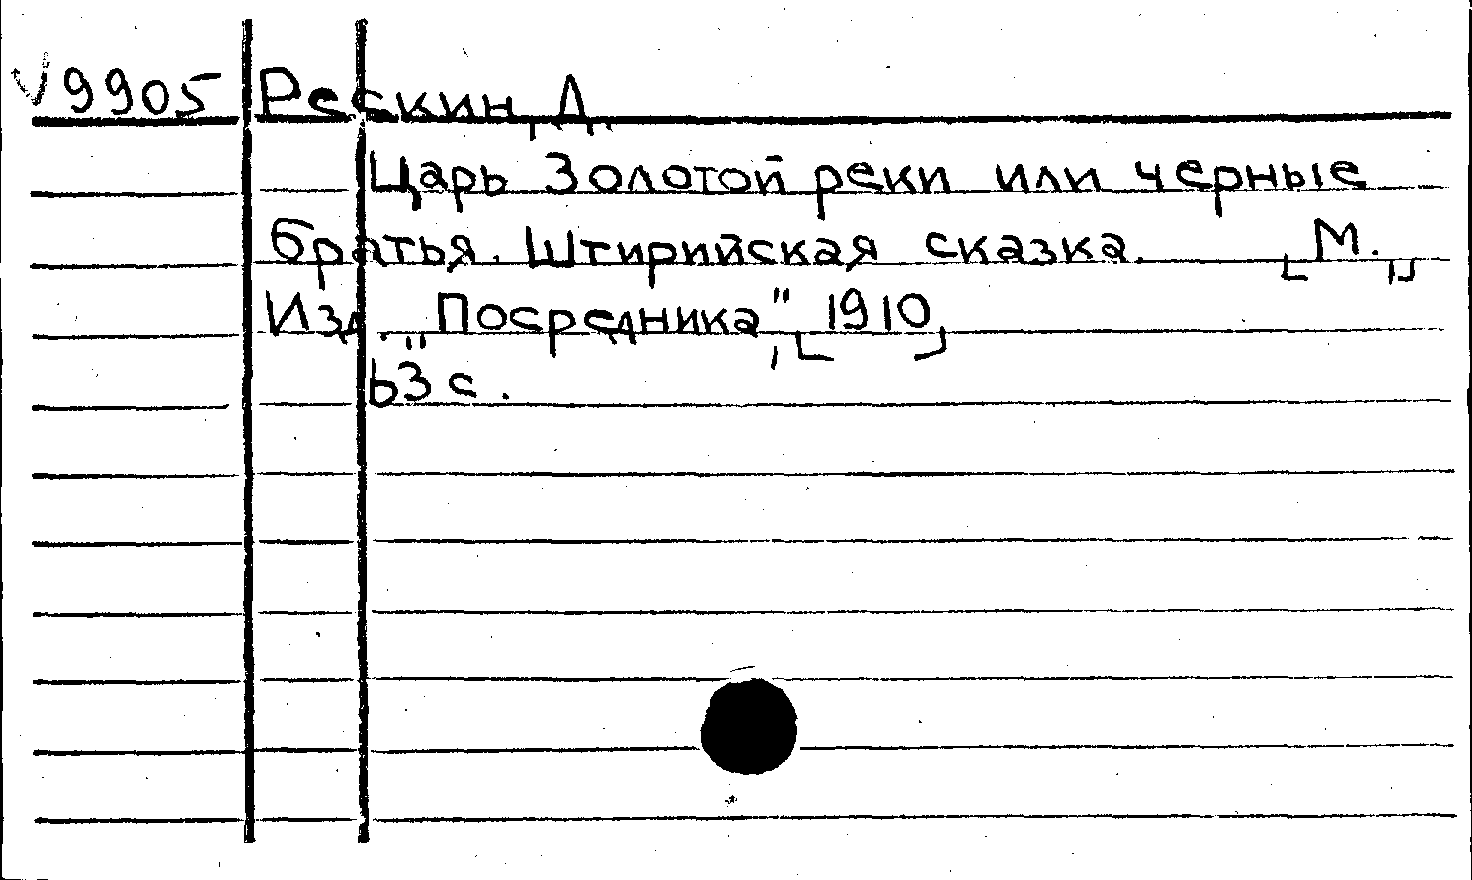 √9905 Рескин, Д.
Царь Золотой реки или черные
братья. Штирийская сказка. [М.,]
Изд. "Посредника", [1910]
63 с.